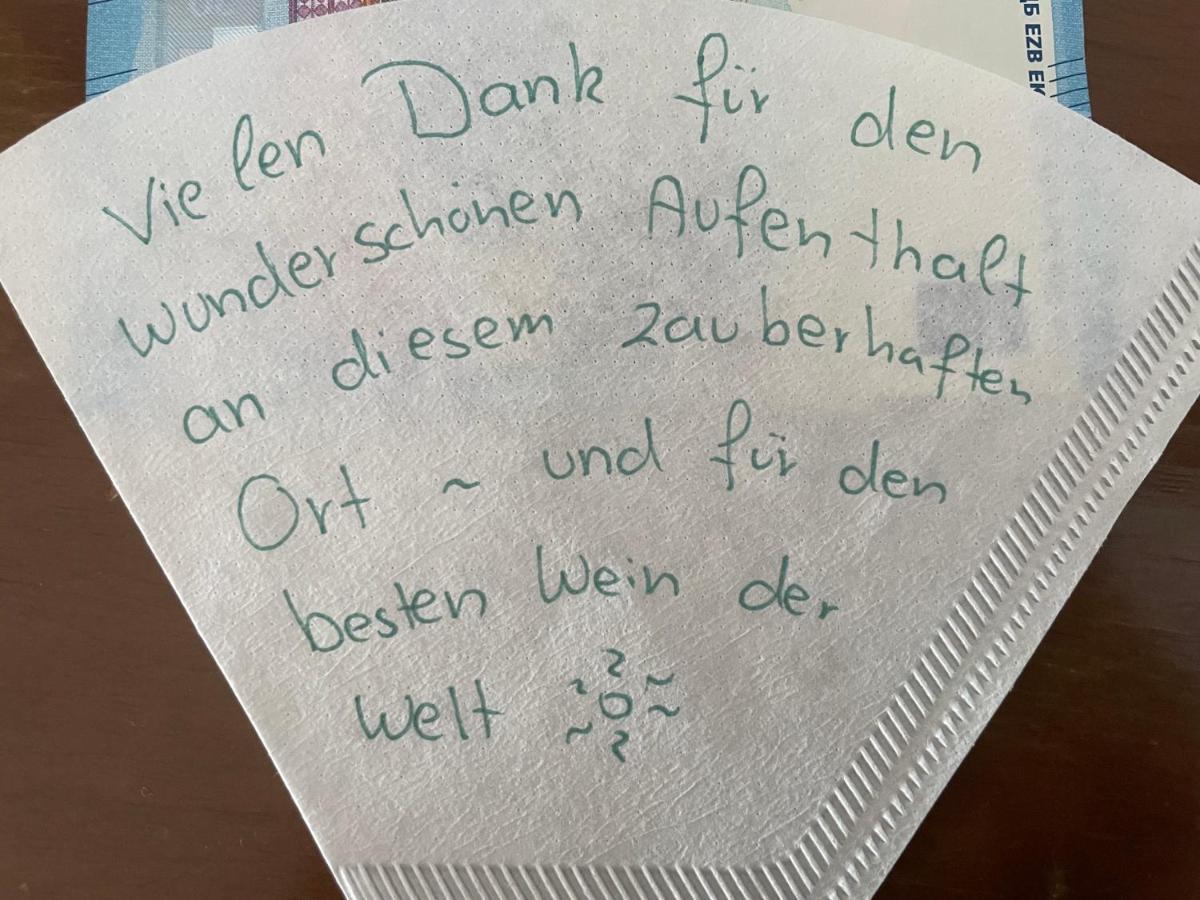 ЦБ EZB EK
Vielen Dank für den
wunderschönen Aufenthalt
an diesem zauberhaften
Ort ~ und für den
besten Wein der
Welt